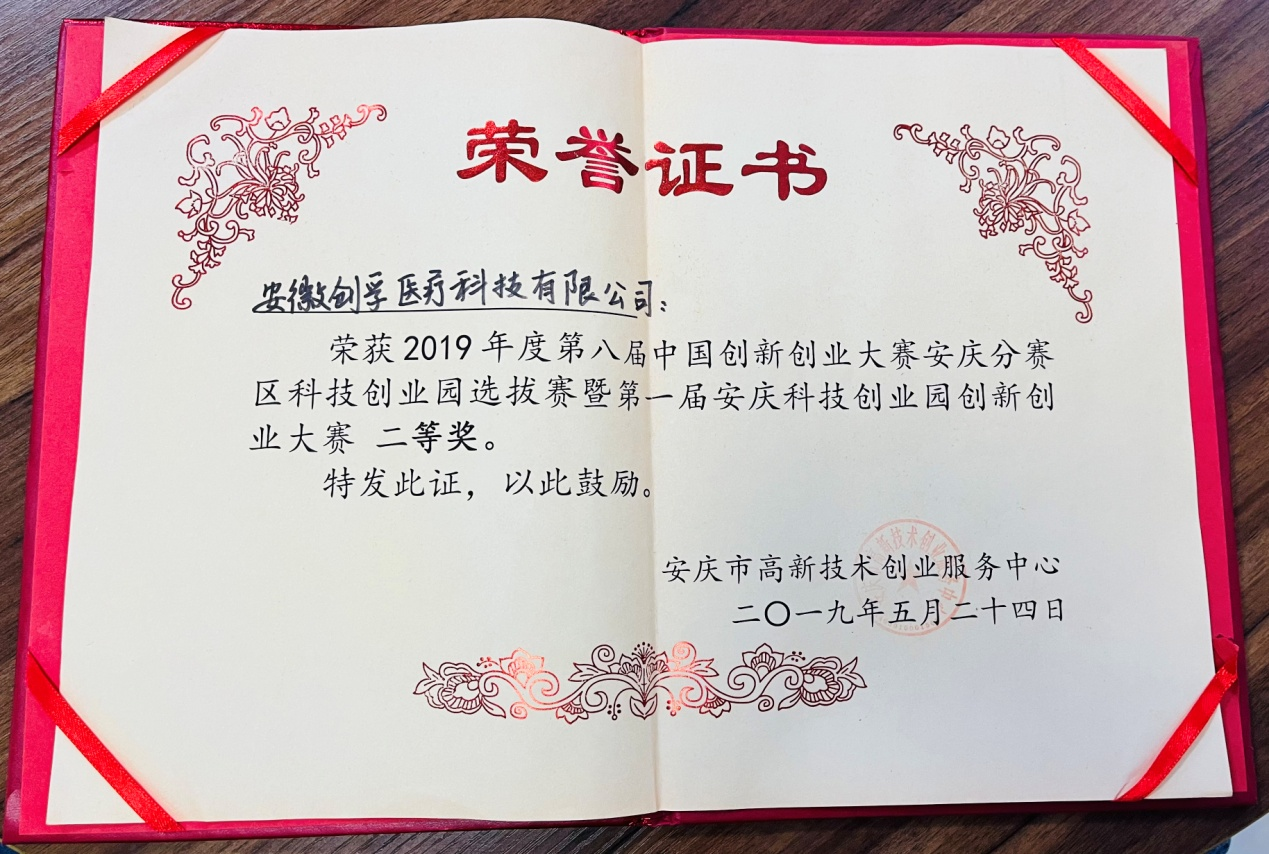 荣誉证书
安徽创孚医疗科技有限公司：
荣获2019年度第八届中国创新创业大赛安庆分赛
区科技创业园选拔赛暨第一届安庆科技创业园创新创
业大赛 二等奖。
特发此证，以此鼓励。
安庆市高新技术创业服务中心
二〇一九年五月二十四日